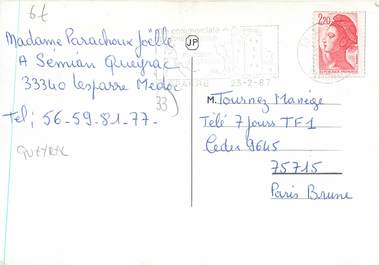 6f
Madame Parachoux Joëlle
A Sémian Queyrac
33340 Lesparre Médoc
Tel; 56-59-81-77-
QUEYRAC
33
JP
23-2-87
2,20
M. Tournez Manège
Télé 7 Jours TF1
Cedex 9645
75715
Paris Brune